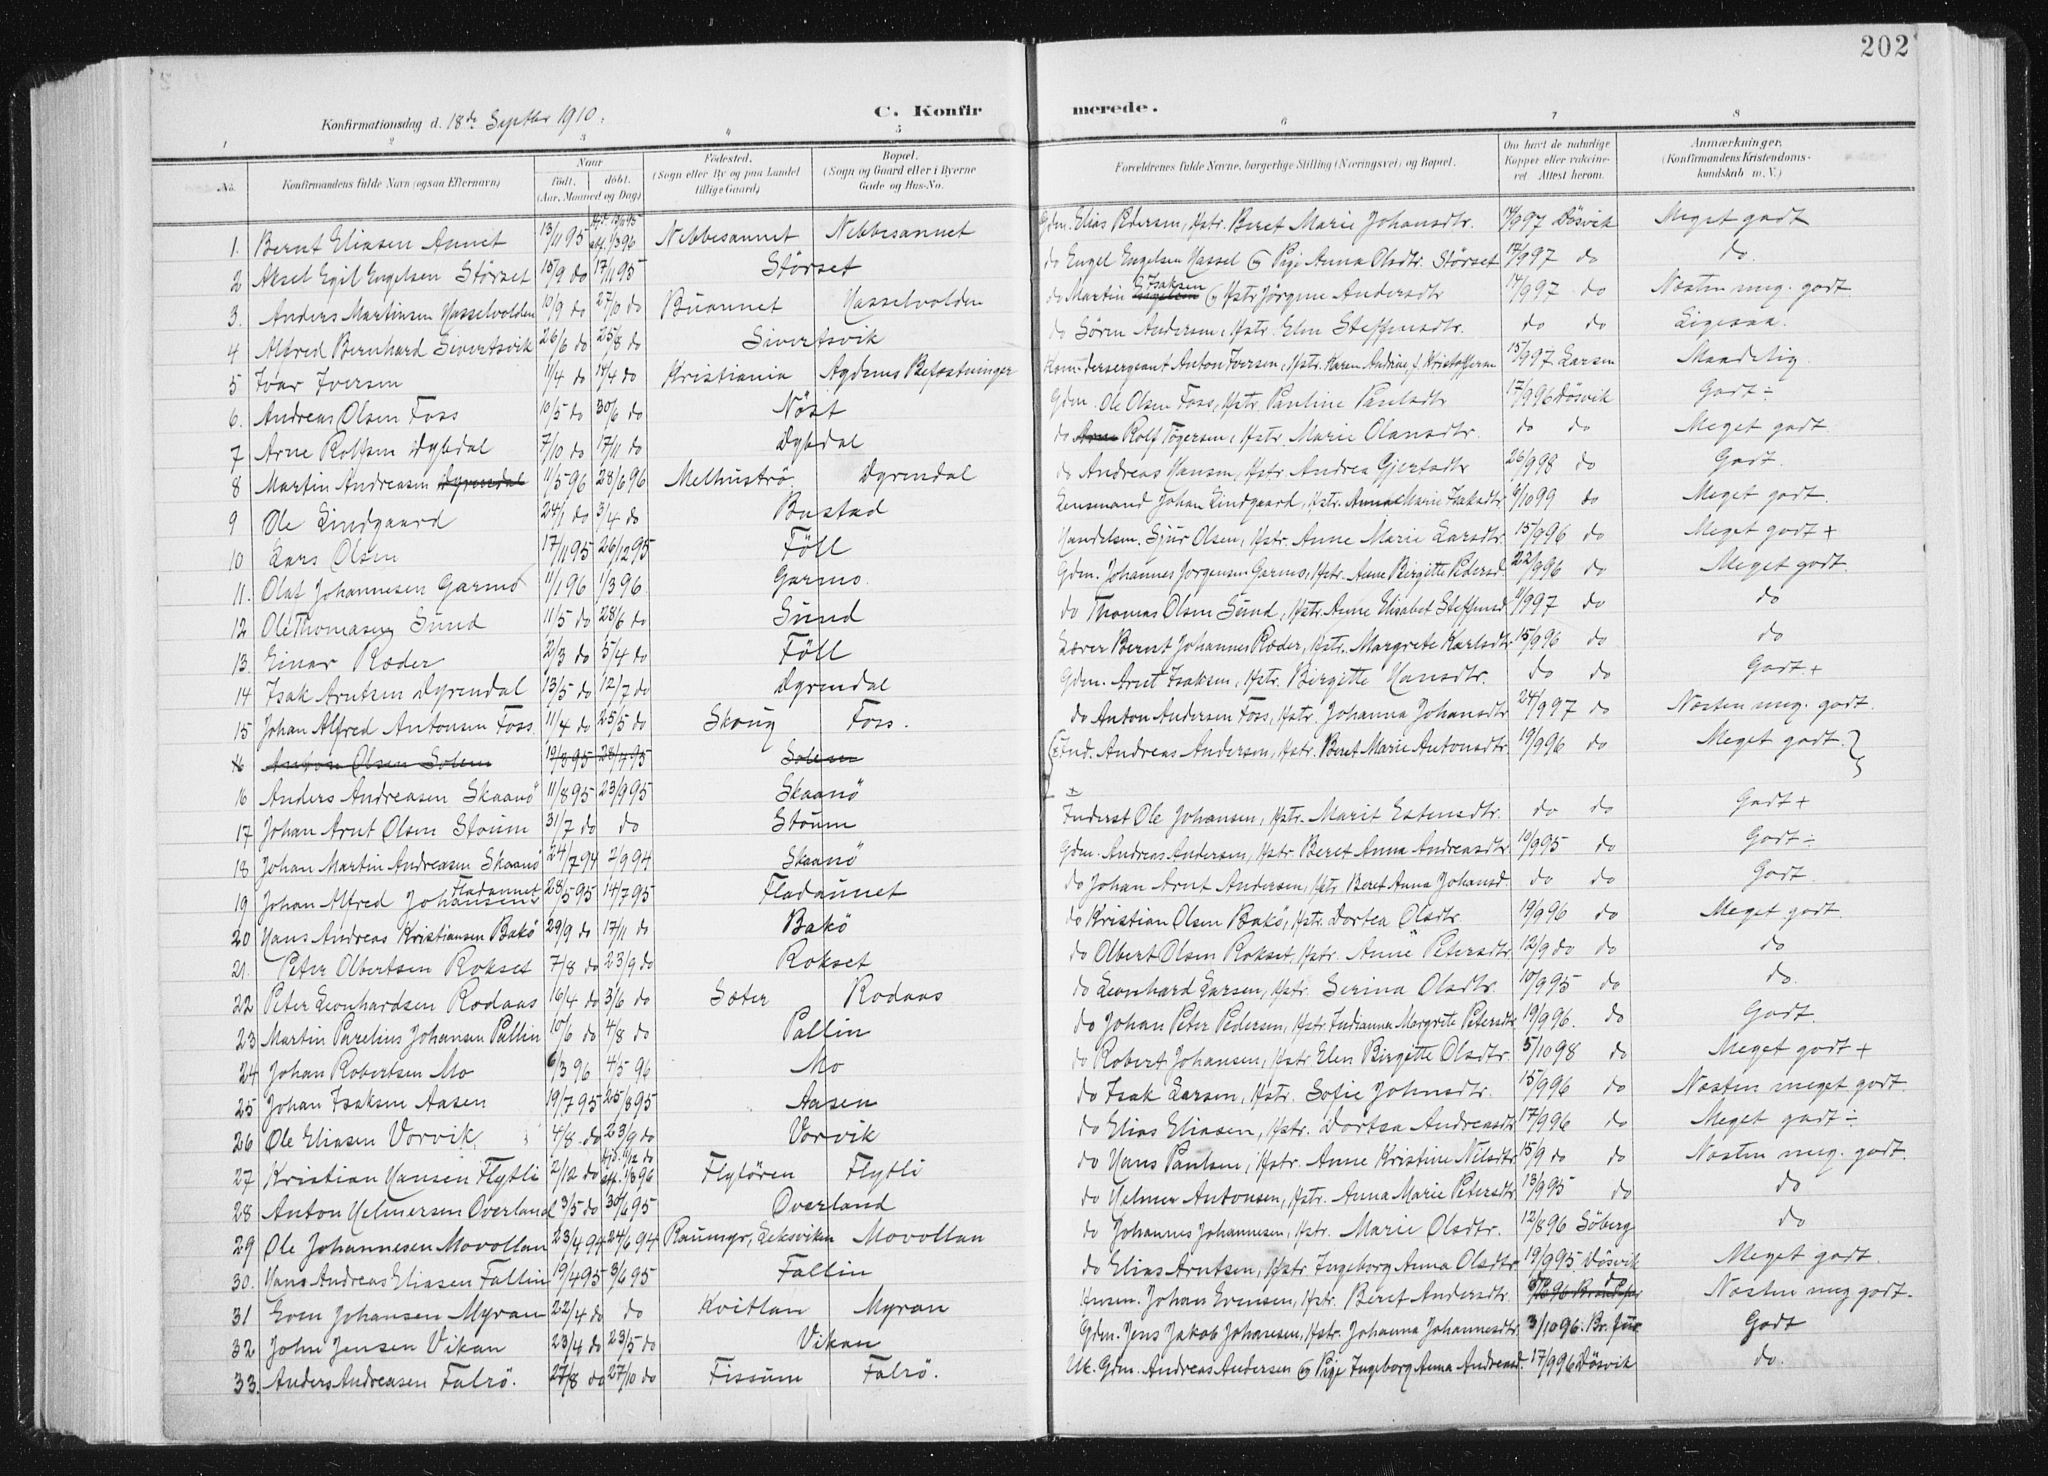 202
Konfirmationsdag d. 18de Septbr 1910.
C. Konfirmerede.
1 2 3 4 5 6 7 8
No. Konfirmandens fulde Navn (ogsaa Efternavn) Naar født. døbt. (Aar, Maaned og Dag) Fødested. (Sogn eller By og paa Landet tillige Gaard) Bopæl. (Sogn og Gaard eller i Byerne Gade og Hus-No. Forældrenes fulde Navne, borgerlige Stilling (Næringsvei) og Bopæl. Om havt de naturlige Kopper eller vakcineret. Attest herom. Anmærkninger. (Konfirmandens Kristendomskundskab m. V.)
1. Bernt Eliasen Aunet 13/11 95 hjd. 13/11 95 stf. 1/3 96 Nebbesaunet Nebbesaunet Gdm. Elias Pedersen, Hstr. Beret Marie Johansdtr. 14/9 97 Døsvik Meget godt
2 Aksel Egil Engelsen Störset 15/9 do 17/11 95 Störset do Engel Engelsen Hassel og Pige Anna Olsdtr. Störset 17/9 97 do do.
3. Anders Martinsen Hasselvolden 10/9 do 27/10 do Buaunet Hasselvolden do Martin Isaksen og Hstr Jörgine Andersdtr 14/9 97 do Næsten meg. godt
4 Alfred Bernhard Sivertsvik 26/6 do 25/8 do Sivertsvik do Sören Andersen, Hstr. Elen Steffensdtr. do do Ligesaa.
5 Ivar Iversen 11/4 do 14/4 do Kristiania Agdenes Befæstninger Kommandersergeant Anton Iversen, Hstr. Karen Andrine f. Kristoffersen 15/9 97 Larsen Maadelig
6. Andreas Olsen Foss 10/5 do 30/6 do Nöst Gdm. Ole Olsen Foss, Hstr. Pauline Paulsdtr 17/9 96 Døsvik Godt ÷
7 Arne Rolfsen Dybdal 7/10 do 17/11 do Dybdal do Arne Rolf Tögersen, Hstr. Marie Olausdtr. do do Meget godt
8 Martin Andreasen Dyrendal 11/5 96 28/6 96 Melhuströ Dyrendal do Andreas Hansen, Hstr. Andrea Gjertsdtr 26/9 98 do Godt
9 Ole Lindgaard 24/1 do 3/4 do Bustad Lensmand Johan Lindgaard, Hstr. Anna Marie Isaksdtr. 6/10 99 do Meget godt.
10 Lars Olsen 17/11 95 26/12 95 Föll Handelsm. Sjur Olsen, Hstr. Anne Marie Larsdtr. 15/9 96 do Meget godt +
11. Olaf Johannesen Garmo 11/1 96 1/3 96 Garmo Gdm. Johannes Jorgensen Garmo, Hstr. Anne Birgitte Pedersd. 22/9 96 do Meget godt.
12 Ole Thomasen Sund 11/5 do 28/6 do Sund do Thomas Olsen Sund, Hstr. Anne Elisabet Steffensd. 11/9 97 do do
13. Einar Röder 2/3 do 5/4 do Föll Lærer Bernt Johannes Röder, Hstr. Margrete Karlsdtr 15/9 96 do do
14 Isak Arntsen Dyrendal 13/5 do 12/7 do Dyrendal Gdm. Arnt Isaksen, Hstr. Birgitte Hansdtr. do do Godt +
15 Johan Alfred Antonsen Foss. 11/4 do 25/5 do Skoug Foss. do Anton Andersen Foss, Hstr. Johanna Johansdtr 24/9 97 do Næsten meg. godt.
16 Anton Olsen Solem 19/3 95 28/7 95 Solem Ind. Andreas Andersen, Hstr. Beret Marie Antonsdtr 19/9 96 do Meget godt.
16 Anders Andreasen Skaanö 11/8 95 23/9 95 Skaanö
17 Johan Arnt Olsen Stoum 31/7 do do Stoum Inderst Ole Johansen, Hstr. Marit Estensdtr. do do Godt +
18 Johan Martin Andreasen Skaanö 24/7 94 2/9 94 Skaanö Gdm. Andreas Andersen, Hstr. Beret Anna Andreasdtr 19/9 95 do Godt ÷
19 Johan Alfred Johansen Fladaunet 28/5 95 14/7 95 Fladaunet do Johan Arnt Andersen, Hstr Beret Anna Johansd. do do Godt
20 Hans Andreas Kristiansen Bakö 29/9 do 17/11 do Bakö do Kristian Olsen Bakö, Hstr. Dortea Olsdtr. 19/9 96 do Meget godt
21. Peter Olbertsen Rokset 7/8 do 23/9 do Rokset do Olbert Olsen Rokset, Hstr. Anne Petersdtr 12/9 do do do
22 Peter Leonhardsen Rodaas 16/4 do 3/6 do Sæter Rodaas do Leonhard Larsen, Hstr. Serina Olsdtr. 10/9 95 do do.
23 Martin Parelius Johansen Pallin 10/6 do 4/8 do Pallin do Johan Peter Pedersen, Hstr. Indianna Margrete Petersdtr 19/9 96. do Godt.
24 Johan Robertsen Mo 6/3 96 4/5 96 Mo do Robert Johansen, Hstr Elen Birgitte Olsdtr. 5/10 98 do Meget godt +
25 Johan Isaksen Aasen 19/7 95 25/8 95 Aasen do Isak Larsen, Hstr. Sofie Johnsdtr. 15/9 96 do Næsten meget godt
26 Ole Eliasen Vorvik 4/8 do 23/9 do Vorvik do Elias Eliasen, Hstr. Dortea Andreasdtr 17/9 96 do Meget godt ÷
27 Kristian Hansen Flytli 2/12 do hjd. 11/12 do stf. 1/3 96 Flytören Flytli do Hans Paulsen, Hstr. Anne Kristine Nilsdtr 15/9 do do Næsten meg. godt.
28 Anton Helmersen Overland 3/5 do 30/6 95 Overland do Helmer Antonsen, Hstr. Anna Marie Petersdtr 13/9 95 do do
29 Ole Johannesen Movollan 23/4 94 24/6 94 Raumyr, Leksviken Movollan do Johannes Johannesen, Hstr. Marie Olsdtr. 12/8 96 Söberg do
30. Hans Andreas Eliasen Fallin 19/4 95 3/6 95 Fallin do Elias Arntsen, Hstr Ingeborg Anna Olsdtr 19/9 95 Døsvik Meget godt.
31 Even Johansen Myran 22/4 do do Kvitlan Myran Husm. Johan Evensen, Hstr. Beret Andersdtr. do do Næsten meg godt.
32 John Jensen Vikan 23/4 do 23/5 do Vikan Gdm. Jens Jakob Johansen, Hstr. Johanna Johannesdtr 3/10 96. Godt
33. Anders Andreasen Falrö. 27/8 do 27/10 do Fissum Falrö. Uk. Gdm. Andreas Andersen og Pige Ingeborg Anna Andreasd. 17/9 96 Døsvik do.